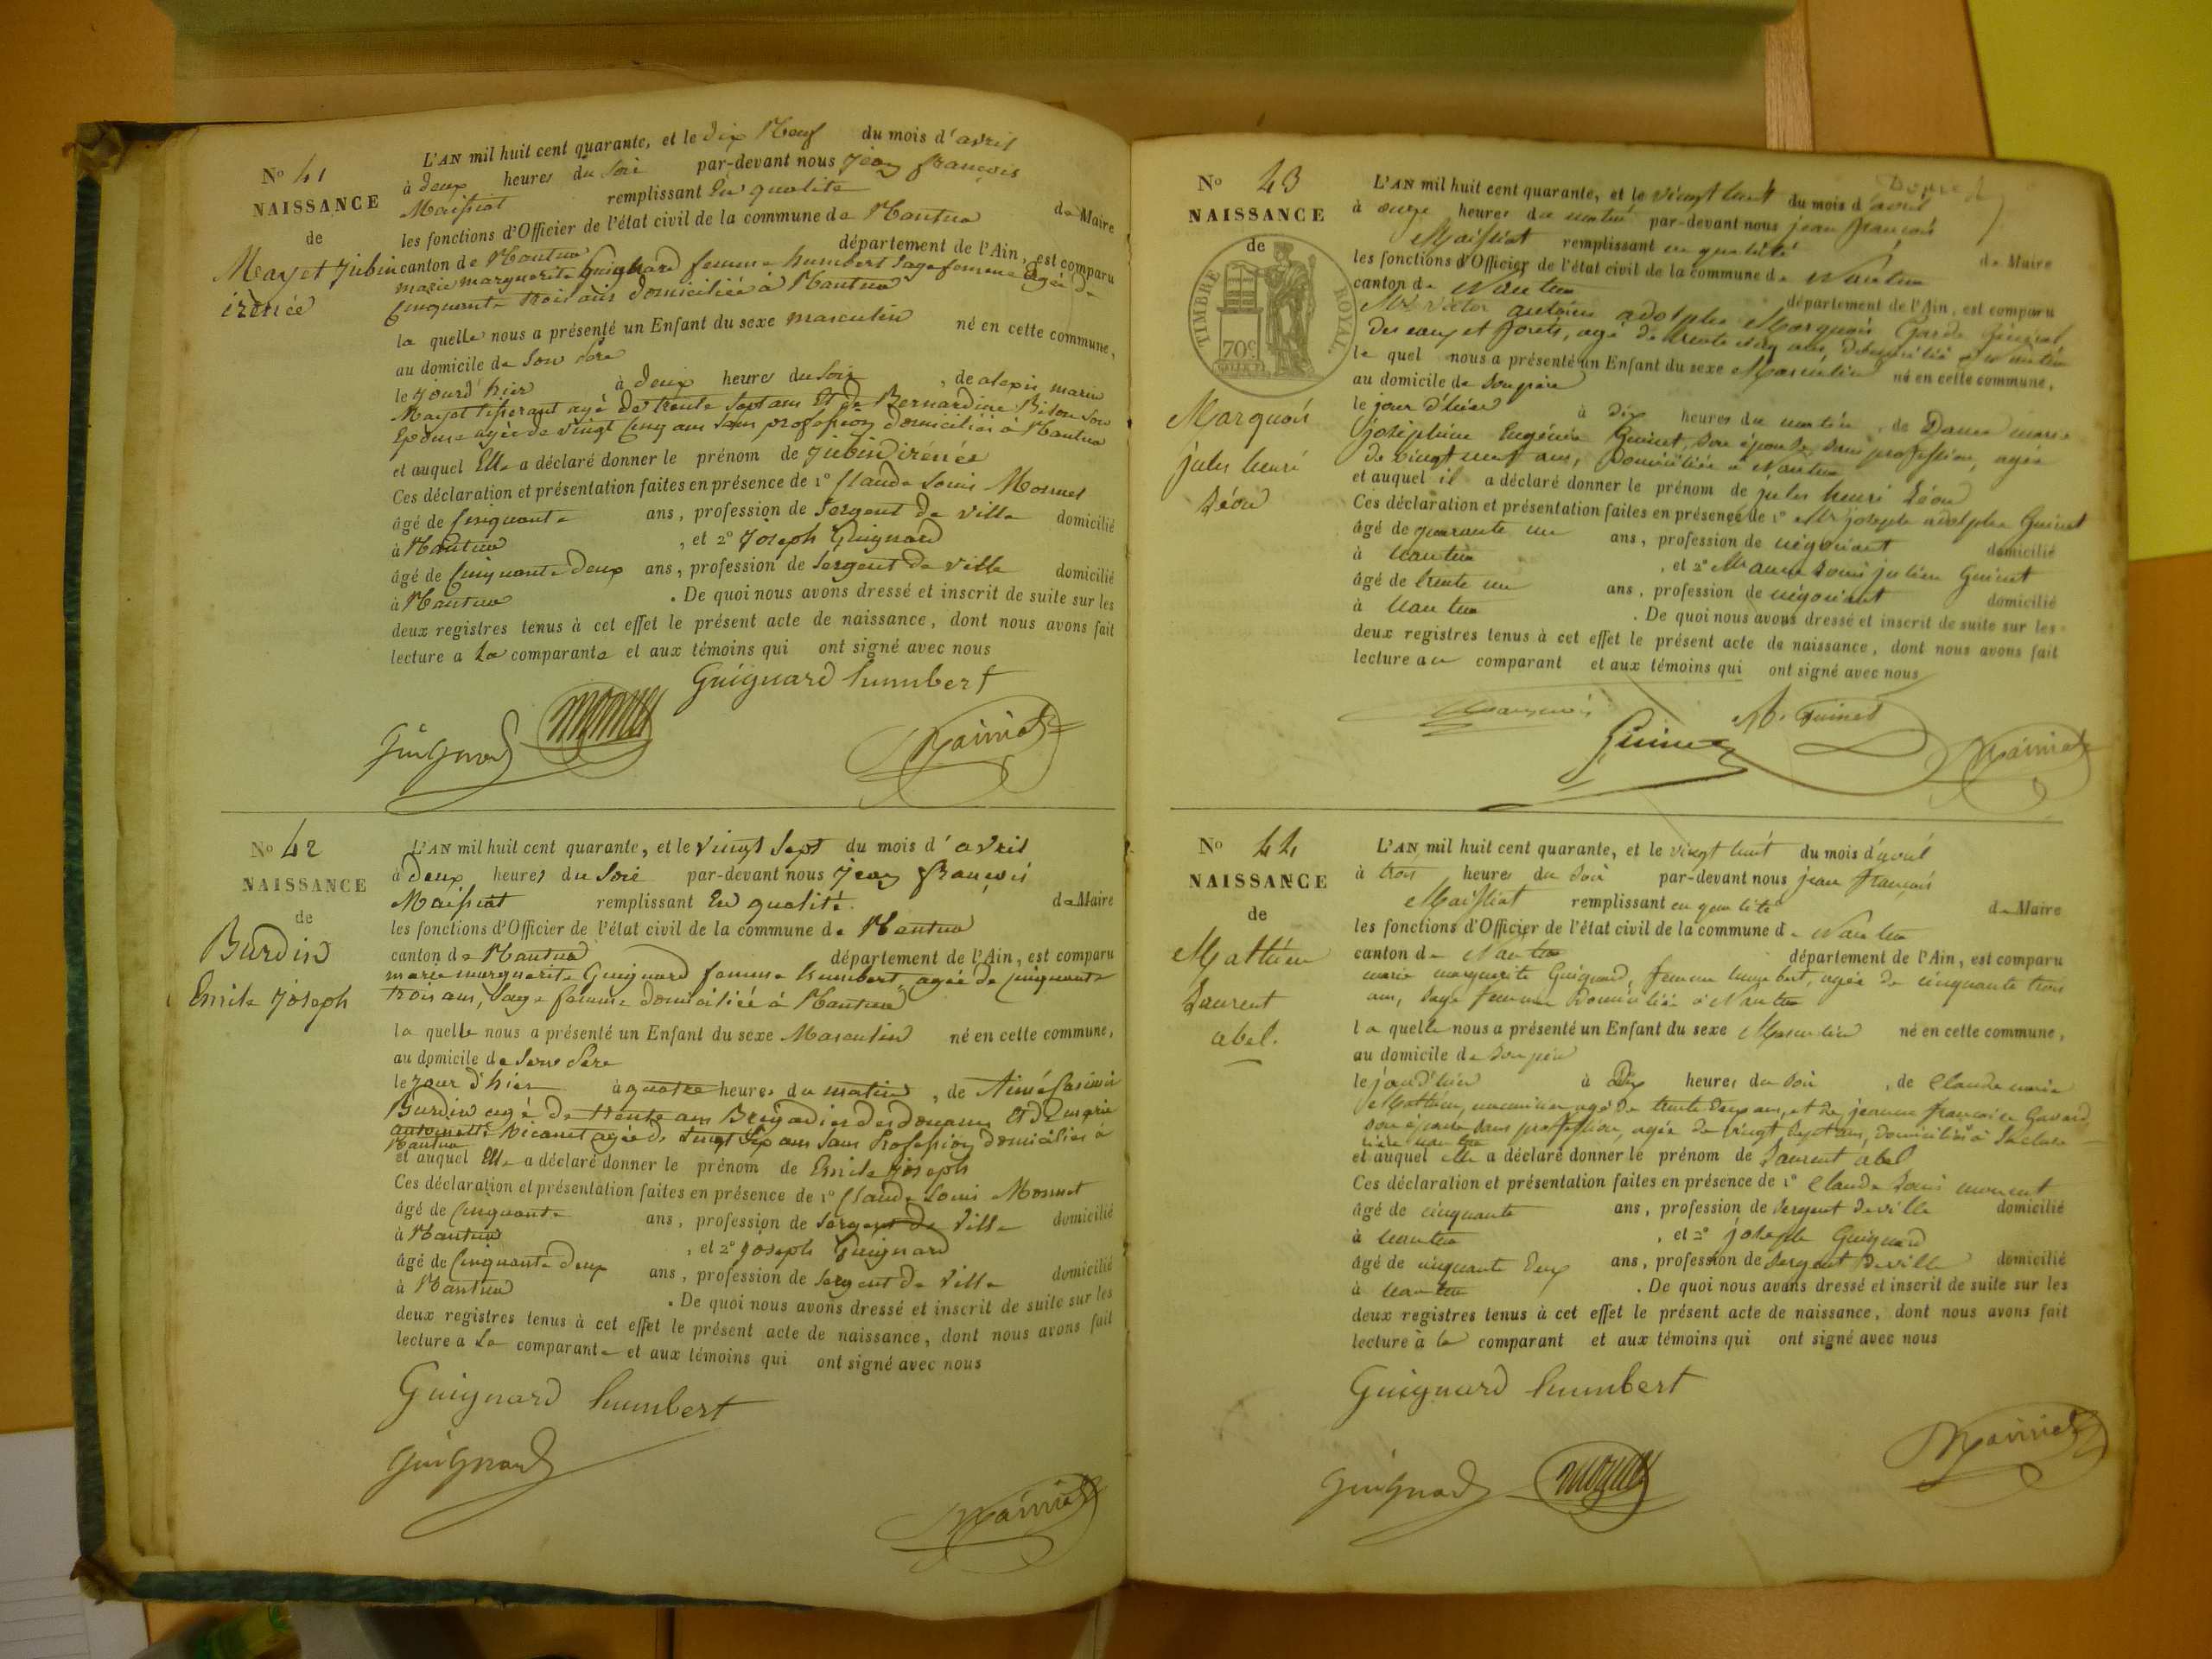 No 41
NAISSANCE
de
Mayet Jubin
irénée
L'AN mil huit cent quarante, et le dix Neuf du mois d'avril
à deux heures du soir par-devant nous Jean françois
Maissiat remplissant En qualité de Maire
les fonctions d'Officier de l'état civil de la commune de Nantua
canton de Nantua département de l'Ain, est comparu
marie marguerite Guignard femme humbert sage femme agée de
Cinquante trois ans domiciliée à Nantua
la quelle nous a présenté un Enfant du sexe masculin né en cette commune,
au domicile de Son Père
le jourd'hier à deux heures du soir, de alexis marie
Mayet tisserant agé de trente Sept ans Et de Bernardine Son
Epouse agée de vingt Cinq ans Sans profession domiciliés à Nantua
et auquel Elle a déclaré donner le prénom de Jubin irénée
Ces déclaration et présentation faites en présence de 1º Claude Louis Monnet
âgé de Cinquante ans, profession de Sergent de ville domicilié
à Nantua, et 2º Joseph Guignard
âgé de Cinquante deux ans, profession de Sergent de ville domicilié
à Nantua. De quoi nous avons dressé et inscrit de suite sur les
deux registres tenus à cet effet le présent acte de naissance, dont nous avons fait
lecture a La comparante et aux témoins qui ont signé avec nous
Guignard humbert
Guignard monnet Maissiat
No 42
NAISSANCE
de
Burdin
Emile Joseph
L'AN mil huit cent quarante, et le vingt Sept du mois d'avril
à deux heures du Soir par-devant nous Jean françois
Maissiat remplissant En qualité de Maire
les fonctions d'Officier de l'état civil de la commune de Nantua
canton de Nantua département de l'Ain, est comparu
marie marguerite Guignard femme humbert, agée de cinquante
trois ans, Sage femme domiciliée à Nantua
la quelle nous a présenté un Enfant du sexe Masculin né en cette commune,
au domicile de Son Père
le jour d'hier à quatre heures du matin, de Aimé Casimir
Burdin agé de trente ans Brigadier des douanes Et de marie
antoinette agée de vingt Six ans Sans Profession domiciliés à
Nantua
et auquel Elle a déclaré donner le prénom de Emile Joseph
Ces déclaration et présentation faites en présence de 1º Claude Louis Monnet
âgé de Cinquante ans, profession de Sergent de Ville domicilié
à Nantua, et 2º Joseph Guignard
âgé de Cinquante deux ans, profession de Sergent de Ville domicilié
à Nantua. De quoi nous avons dressé et inscrit de suite sur les
deux registres tenus à cet effet le présent acte de naissance, dont nous avons fait
lecture a La comparante et aux témoins qui ont signé avec nous
Guignard humbert
Guignard
Maissiat
No 43
NAISSANCE
de
TIMBRE ROYAL
70c
Marquois
jules henri
Léon
L'AN mil huit cent quarante, et le vingt huit du mois d'avril
à onze heures du matin par-devant nous jean françois
Maissiat remplissant en qualité de Maire
les fonctions d'Officier de l'état civil de la commune de Nantua
canton de Nantua département de l'Ain, est comparu
Mr victor antoine adolphe Marquois Garde Général
des eaux et forêts, agé de trente cinq ans, domicilié à Nantua
le quel nous a présenté un Enfant du sexe Masculin né en cette commune,
au domicile de son père
le jour d'hier à dix heures du matin, de Dame marie
joséphine Eugénie Guinet, son épouse, sans profession, agée
de vingt neuf ans, Domiciliée à Nantua
et auquel il a déclaré donner le prénom de jules henri Léon
Ces déclaration et présentation faites en présence de 1º Mr joseph adolphe Guinet
âgé de quarante un ans, profession de négociant domicilié
à nantua, et 2º Mr Louis julien Guinet
âgé de trente un ans, profession de négociant domicilié
à nantua. De quoi nous avons dressé et inscrit de suite sur les
deux registres tenus à cet effet le présent acte de naissance, dont nous avons fait
lecture au comparant et aux témoins qui ont signé avec nous
Marquois A. Guinet
Guinet Maissiat
No 44
NAISSANCE
de
Mathieu
Laurent
abel.
L'AN mil huit cent quarante, et le vingt huit du mois d'avril
à trois heures du soir par-devant nous jean françois
Maissiat remplissant en qualité de Maire
les fonctions d'Officier de l'état civil de la commune de Nantua
canton de Nantua département de l'Ain, est comparu
marie marguerite Guignard, femme humbert, agée de cinquante trois
ans, sage femme Domiciliée à Nantua
la quelle nous a présenté un Enfant du sexe Masculin né en cette commune,
au domicile de son père
le jour d'hier à Dix heures du soir, de Claude marie
Mathieu, agé de trente deux ans, et de jeanne françoise
son épouse sans profession, agée de vingt sept ans, Domiciliés à
nantua
et auquel elle a déclaré donner le prénom de Laurent abel
Ces déclaration et présentation faites en présence de 1º Claude Louis monnet
âgé de cinquante ans, profession de sergent de ville domicilié
à nantua, et 2º joseph Guignard
âgé de cinquante deux ans, profession de sergent de ville domicilié
à nantua. De quoi nous avons dressé et inscrit de suite sur les
deux registres tenus à cet effet le présent acte de naissance, dont nous avons fait
lecture à la comparant et aux témoins qui ont signé avec nous
Guignard humbert
Guignard monnet Maissiat